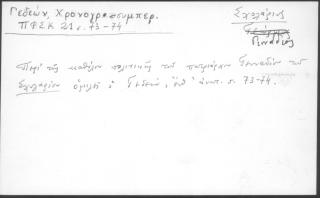 Γεδεών, Χρονογραφσυμπερ.
ΠΦΣΚ 21 σ. 73-74
Σχολάριος
Γεννάδιος
Περὶ τῆς καθόλου πολιτικῆς τοῦ πατριάρχου Γενναδίου τοῦ
Σχολαρίου ὁμιλεῖ ὁ Γεδεών, ἔνθ' ἀνωτ. σ. 73-74.